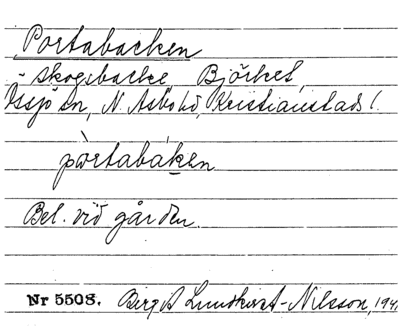 Portabacken
- skogsbacke Björket,
Össjö sn, N. Åsbo hd, Kristianstads l.
pòrtabáken
Bel. vid gården.
Nr 5508. Birgit Lundkvist-Nilsson, 194